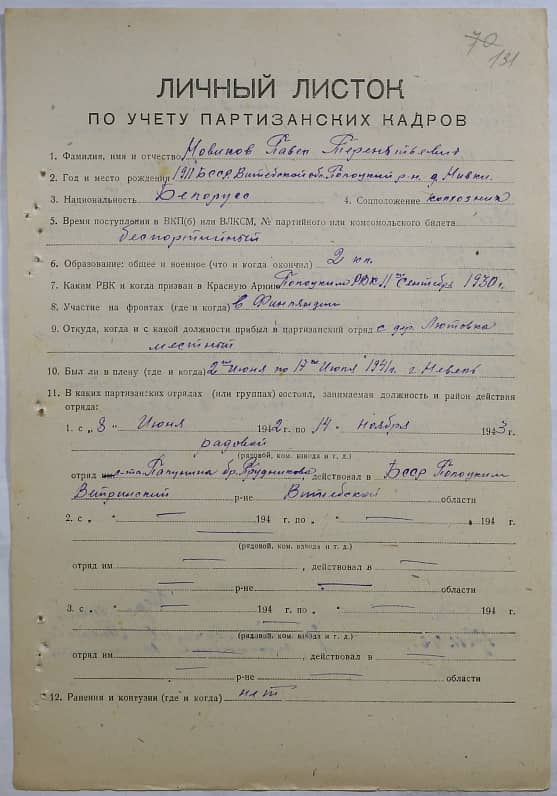 70
131
ЛИЧНЫЙ ЛИСТОК
ПО УЧЕТУ ПАРТИЗАНСКИХ КАДРОВ
1. Фамилия, имя и отчество Новиков Павел Терентьевич
2. Год и место рождения 1911 БССР Витебской об. Полоцкий р-н д.
3. Национальность Белорусс 4. Соцположение колхозник
5. Время поступления в ВКП(б) или ВЛКСМ, № партийного или комсомольского билета
беспартийный
6. Образование: общее и военное (что и когда окончил) 2 кл.
7. Каким РВК и когда призван в Красную Армию Полоцким РВК 11 Сентябрь 1930 г.
8. Участие на фронтах (где и когда) в Финляндии
9. Откуда, когда и с какой должности прибыл в партизанский отряд с дер. Лютовка
местный
10. Был ли в плену (где и когда) 2 Июня по 17 Июля 1941 г. г. Невель
11. В каких партизанских отрядах (или группах) состоял, занимаемая должность и район действия
отряда:
1. с „ 8 " Июня 1942 г. по 14 " ноября 1943 г.
радовой
(рядовой, ком. взвода и т. д.)
отряд им. бр. Прудникова, действовал в БССР Полоцким
Ветринский р-не Витебской области
2. с „ — " — 194 г. по „ — " — 194 г.
(рядовой, ком. взвода и т. д.)
отряд им — , действовал в —
— р-не — области
3. с „ — " — 194 г. по „ " — 194 г.
(рядовой, ком. взвода и т. д.)
отряд им — , действовал в —
— р-не — области
12. Ранения и контузии (где и когда) нет